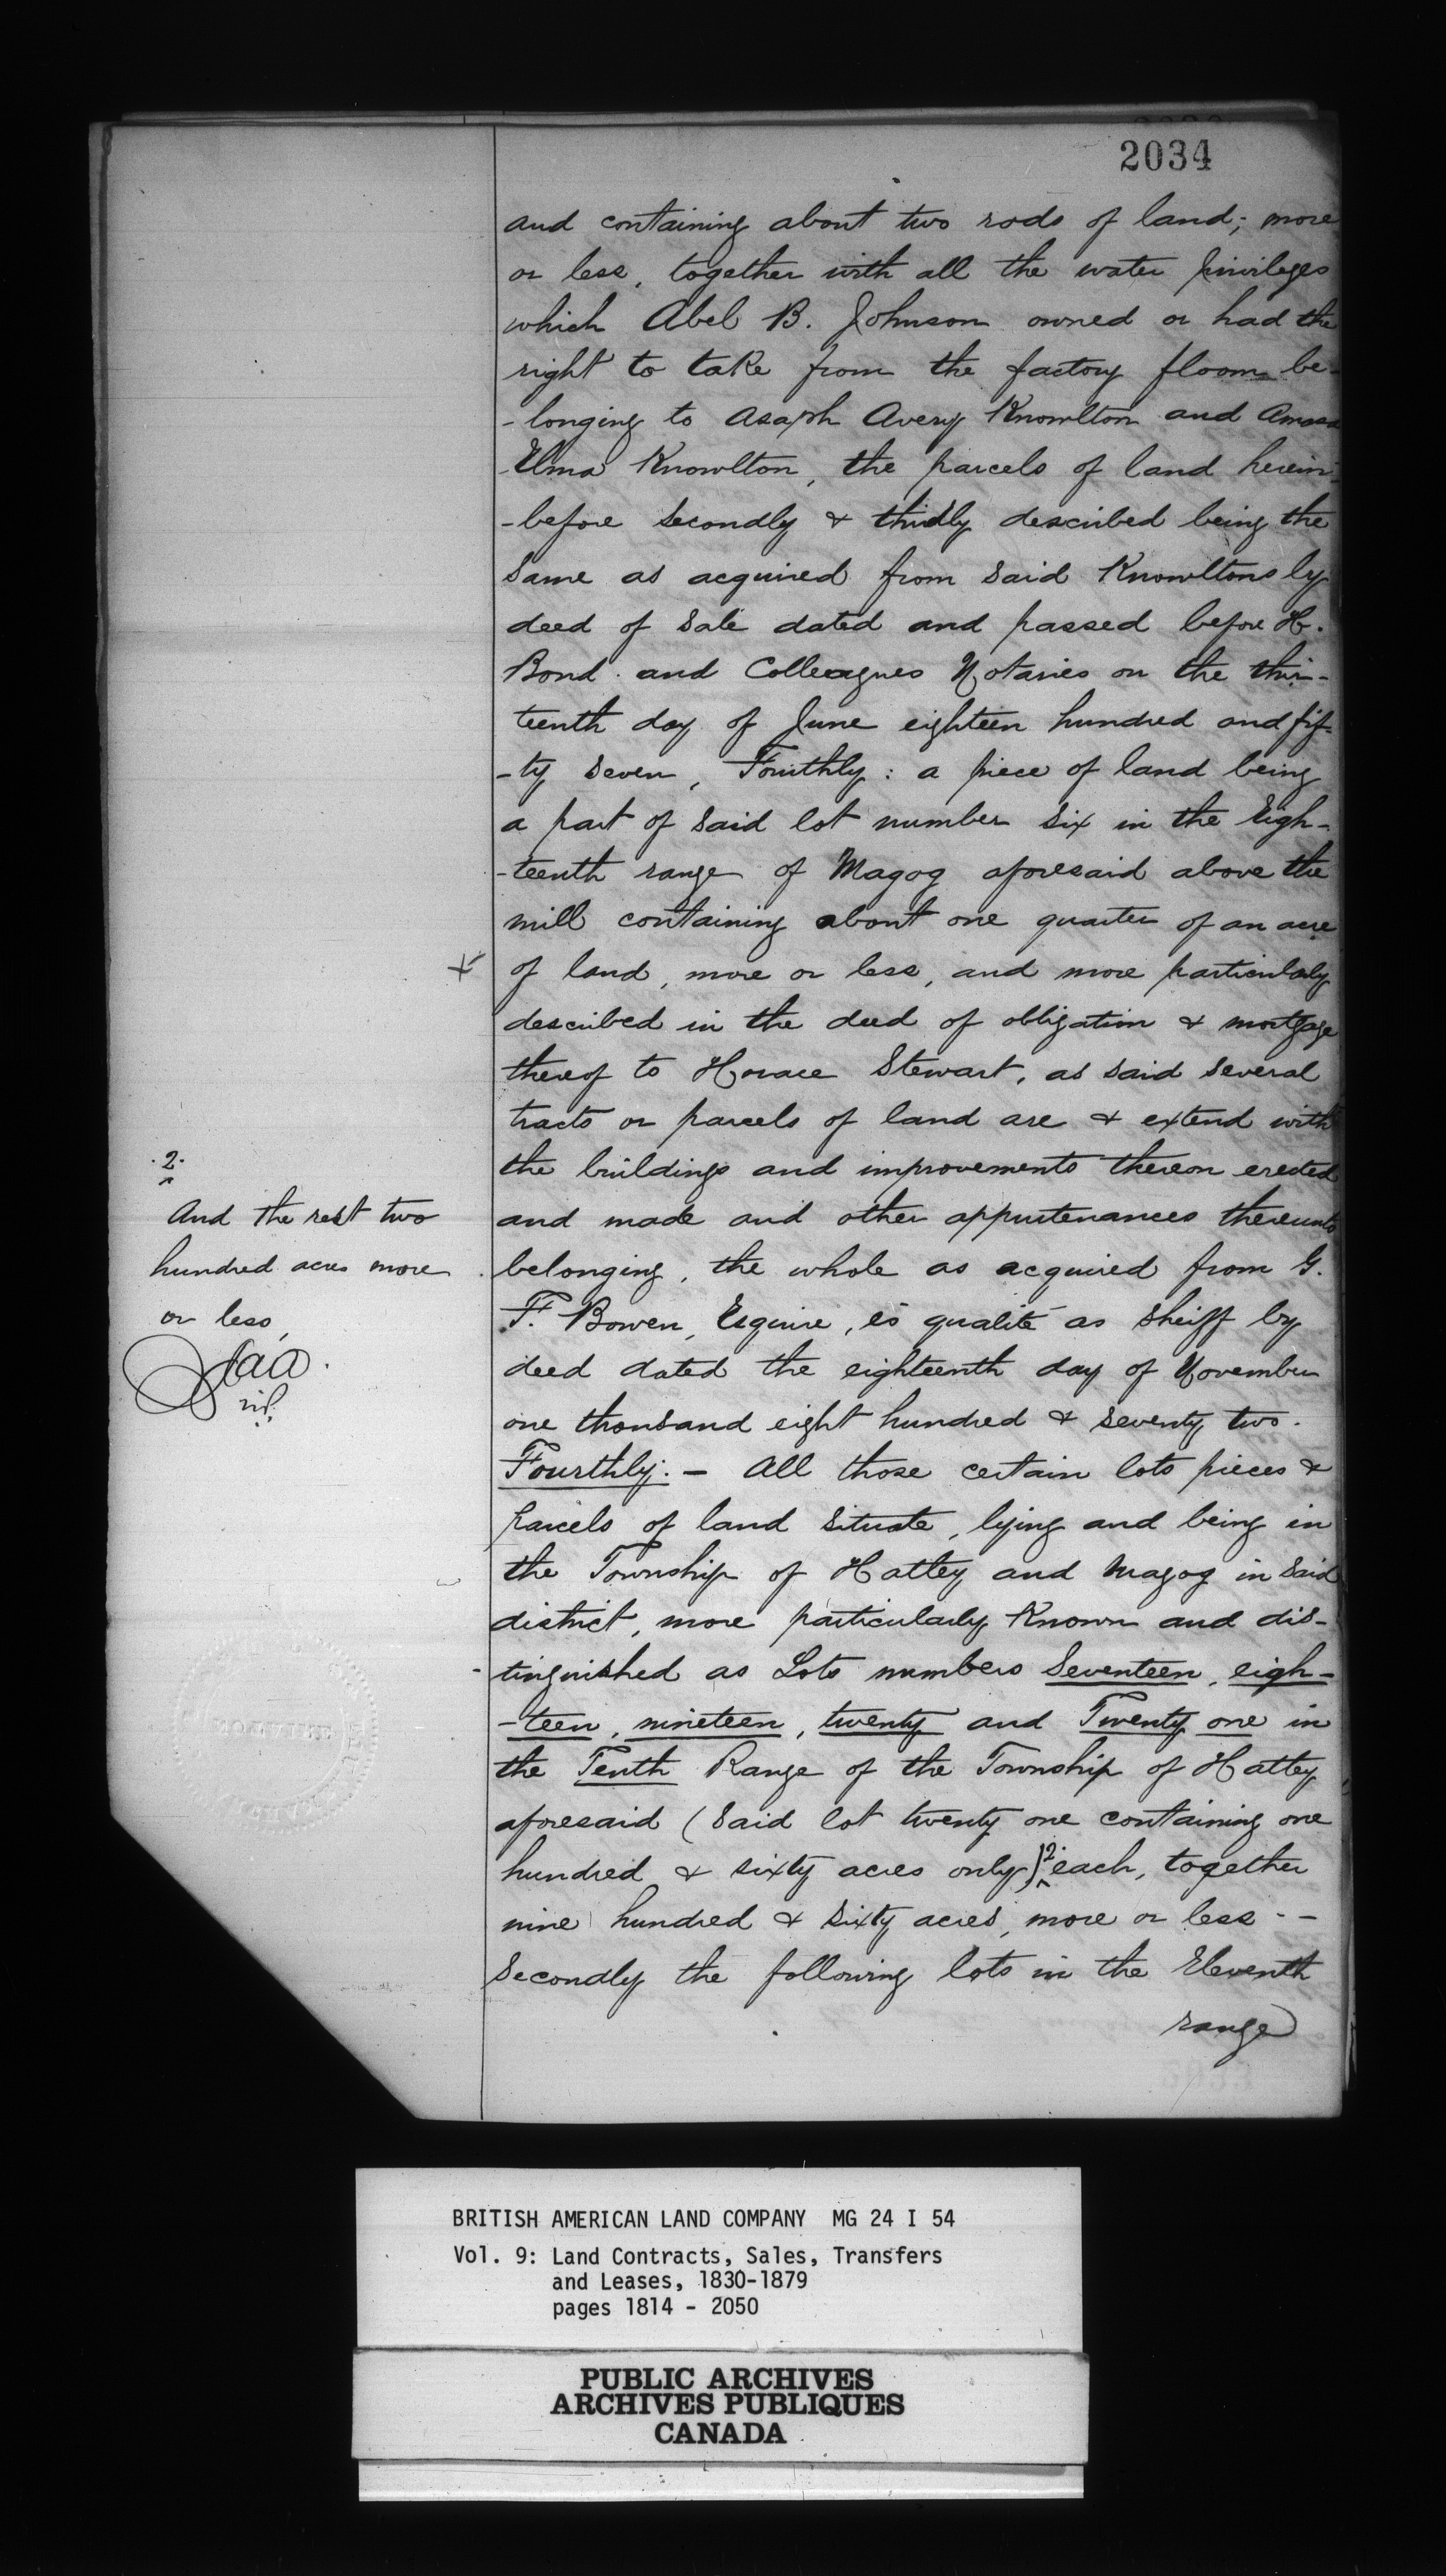 2034
and containing about two rods of land; more
or less, together with all the water privileges
which Abel B. Johnson owned or had the
right to take from the factory floom be-
-longing to Asaph Avery Knowlton and Amasa
Elma Knowlton, the parcels of land herein-
-before secondly & thirdly described being the
same as acquired from said Knowltons by
deed of sale dated and passed before H.
Bond and Colleagues Notaries on the thir-
teenth day of June eighteen hundred and fif-
-ty seven, Fourthly: a piece of land being
a part of said lot number six in the Eigh-
-teenth range of Magog aforesaid above the
mill containing about one quarter of an acre
of land, more or less, and more particularly
described in the deed of obligation & mortgage
thereof to Horace Stewart, as said several
tracts or parcels of land are & extend with
the buildings and improvements thereon erected
and made and other appurtenances thereunto
belonging, the whole as acquired from G.
F. Bowen, Esquire, ès qualité as Sheriff by
deed dated the eighteenth day of November
one thousand eight hundred & seventy two.
Fourthly: - All those certain lots pieces &
parcels of land situate, lying and being in
the Township of Hatley and Magog in said
district, more particularly Known and dis-
tinguished as Lots numbers Seventeen, eigh-
-teen, nineteen, twenty and Twenty one in
the Tenth Range of the Township of Hatley
aforesaid (Said lot twenty one containing one
hundred & sixty acres only) 2 each, together
nine hundred & sixty acres, more or less - -
Secondly the following lots in the Eleventh
range
2
And the rest two
hundred acres more
or less,
BRITISH AMERICAN LAND COMPANY MG 24 I 54
Vol. 9: Land Contracts, Sales, Transfers
and Leases, 1830-1879
pages 1814 - 2050
PUBLIC ARCHIVES
ARCHIVES PUBLIQUES
CANADA